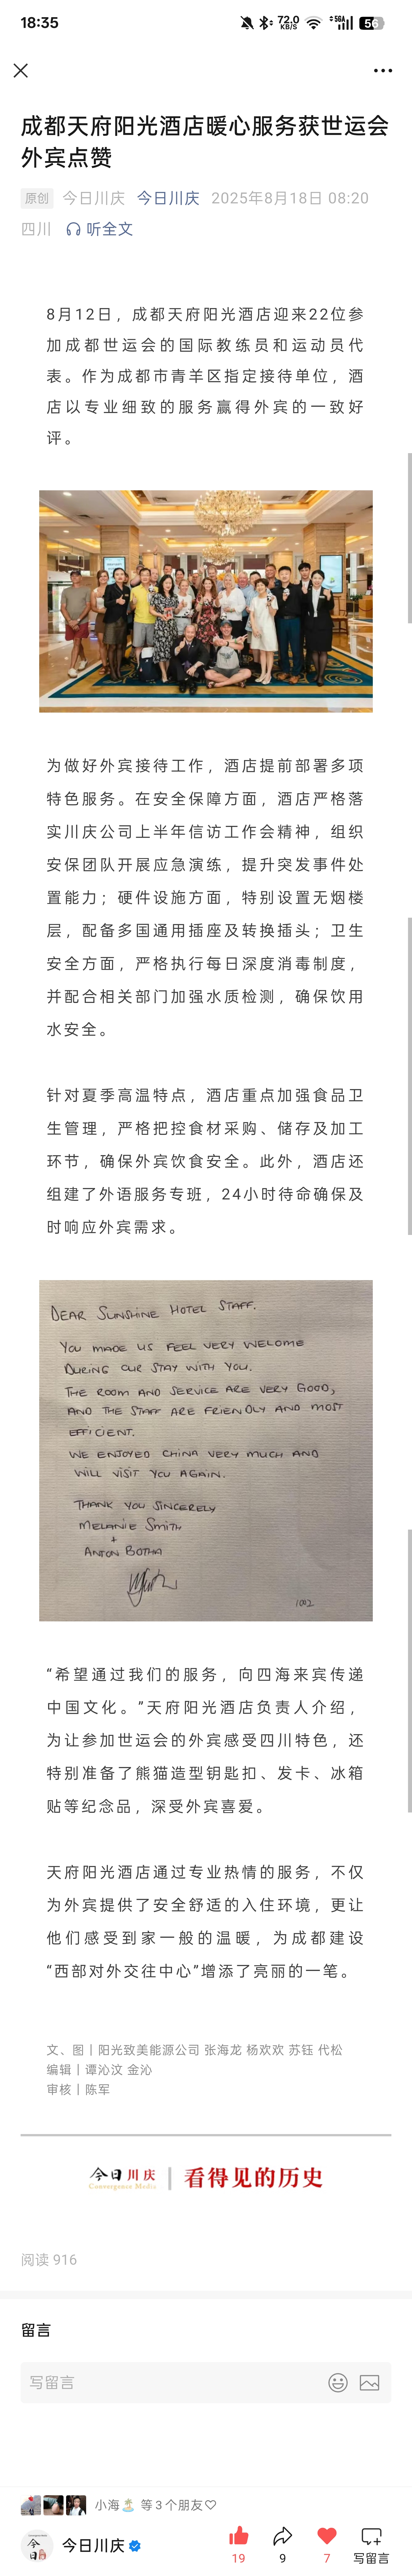 18:35
72.0
KB/S
5GA
56
成都天府阳光酒店暖心服务获世运会
外宾点赞
原创 今日川庆 今日川庆 2025年8月18日 08:20
四川 听全文
8月12日，成都天府阳光酒店迎来22位参
加成都世运会的国际教练员和运动员代
表。作为成都市青羊区指定接待单位，酒
店以专业细致的服务赢得外宾的一致好
评。
为做好外宾接待工作，酒店提前部署多项
特色服务。在安全保障方面，酒店严格落
实川庆公司上半年信访工作会精神，组织
安保团队开展应急演练，提升突发事件处
置能力；硬件设施方面，特别设置无烟楼
层，配备多国通用插座及转换插头；卫生
安全方面，严格执行每日深度消毒制度，
并配合相关部门加强水质检测，确保饮用
水安全。
针对夏季高温特点，酒店重点加强食品卫
生管理，严格把控食材采购、储存及加工
环节，确保外宾饮食安全。此外，酒店还
组建了外语服务专班，24小时待命确保及
时响应外宾需求。
DEAR SUNSHINE HOTEL STAFF.
YOU MADE US FEEL VERY WELCOME
DURING OUR STAY WITH YOU.
THE ROOM AND SERVICE ARE VERY GOOD,
AND THE STAFF ARE FRIENDLY AND MOST
EFFICIENT.
WE ENJOYED CHINA VERY MUCH AND
WILL VISIT YOU AGAIN.
THANK YOU SINCERELY
MELANIE SMITH
+
ANTON BOTHA
1002
“希望通过我们的服务，向四海来宾传递
中国文化。”天府阳光酒店负责人介绍，
为让参加世运会的外宾感受四川特色，还
特别准备了熊猫造型钥匙扣、发卡、冰箱
贴等纪念品，深受外宾喜爱。
天府阳光酒店通过专业热情的服务，不仅
为外宾提供了安全舒适的入住环境，更让
他们感受到家一般的温暖，为成都建设
“西部对外交往中心”增添了亮丽的一笔。
文、图丨阳光致美能源公司 张海龙 杨欢欢 苏钰 代松
编辑丨谭沁汶 金沁
审核丨陈军
今日川庆 | 看得见的历史
Convergence Media
阅读 916
留言
写留言
小海🏝️ 等3个朋友♡
今日川庆
19 9 7 写留言